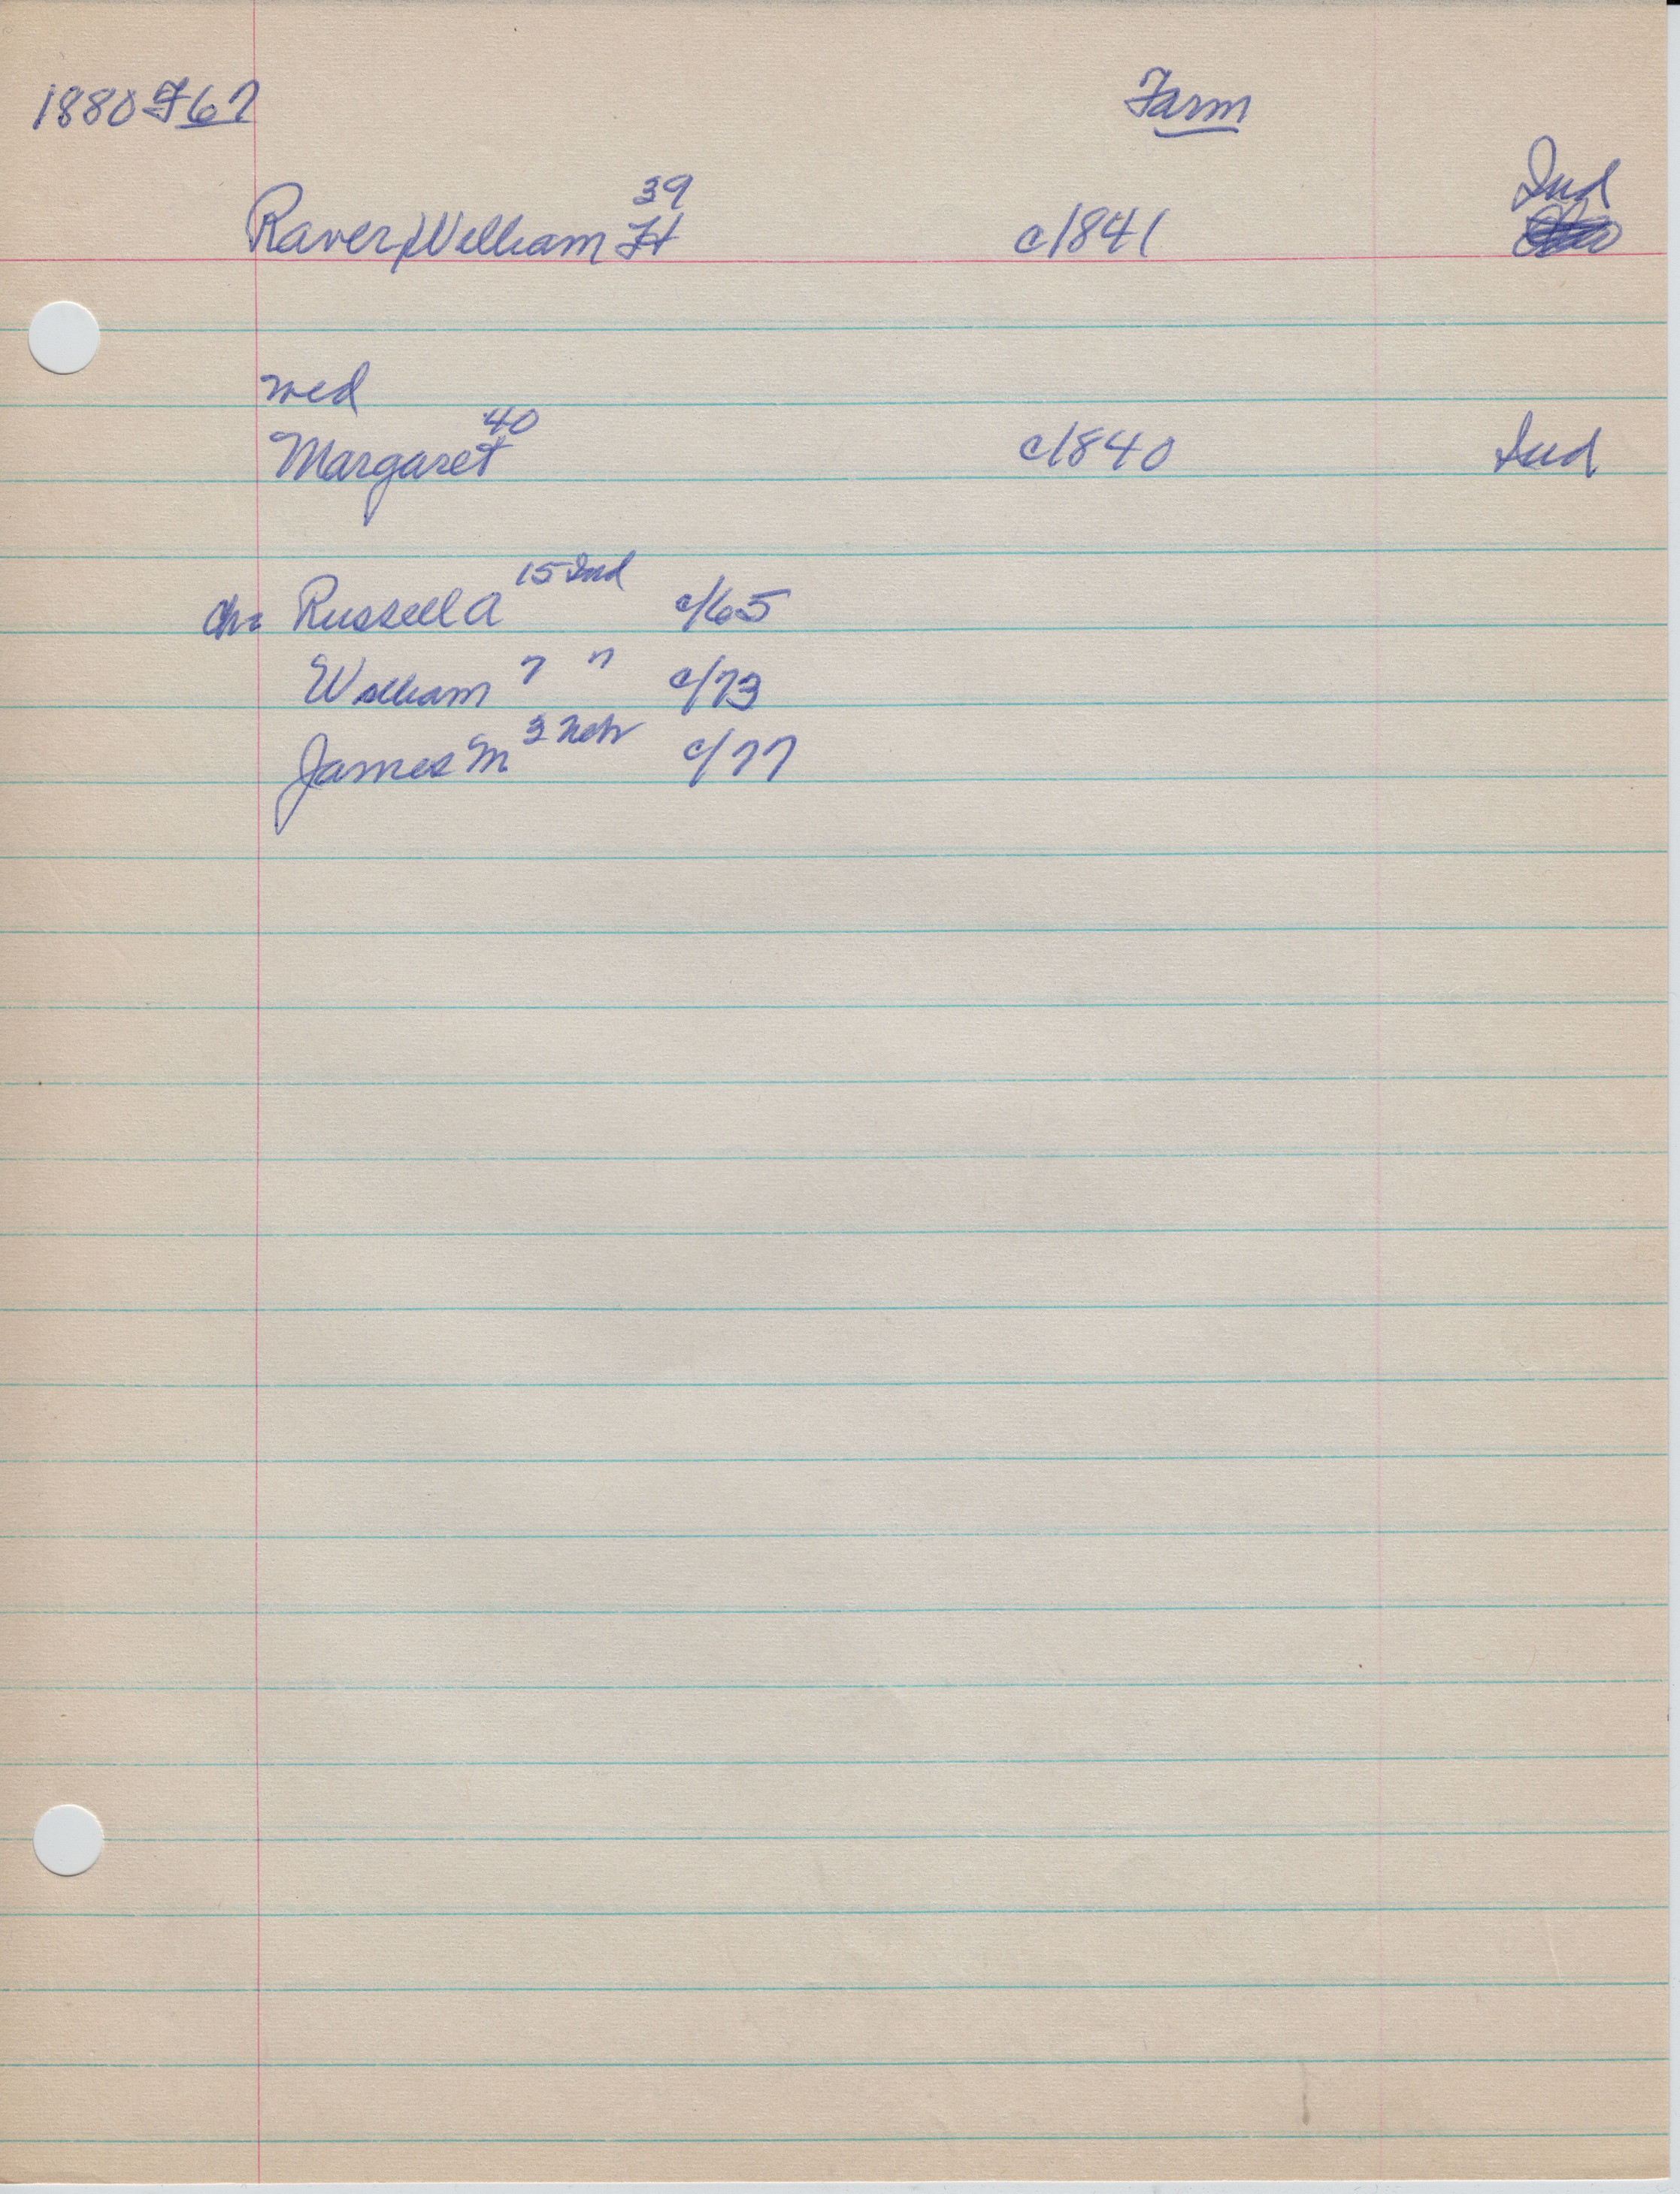 1880 F67 Farm
Ind
Raver, William H 39 c/1841
wed
Margaret 40 c/1840 Ind
ch: Russell A 15 Ind c/65
William 7 " c/73
James M 3 Neb c/77